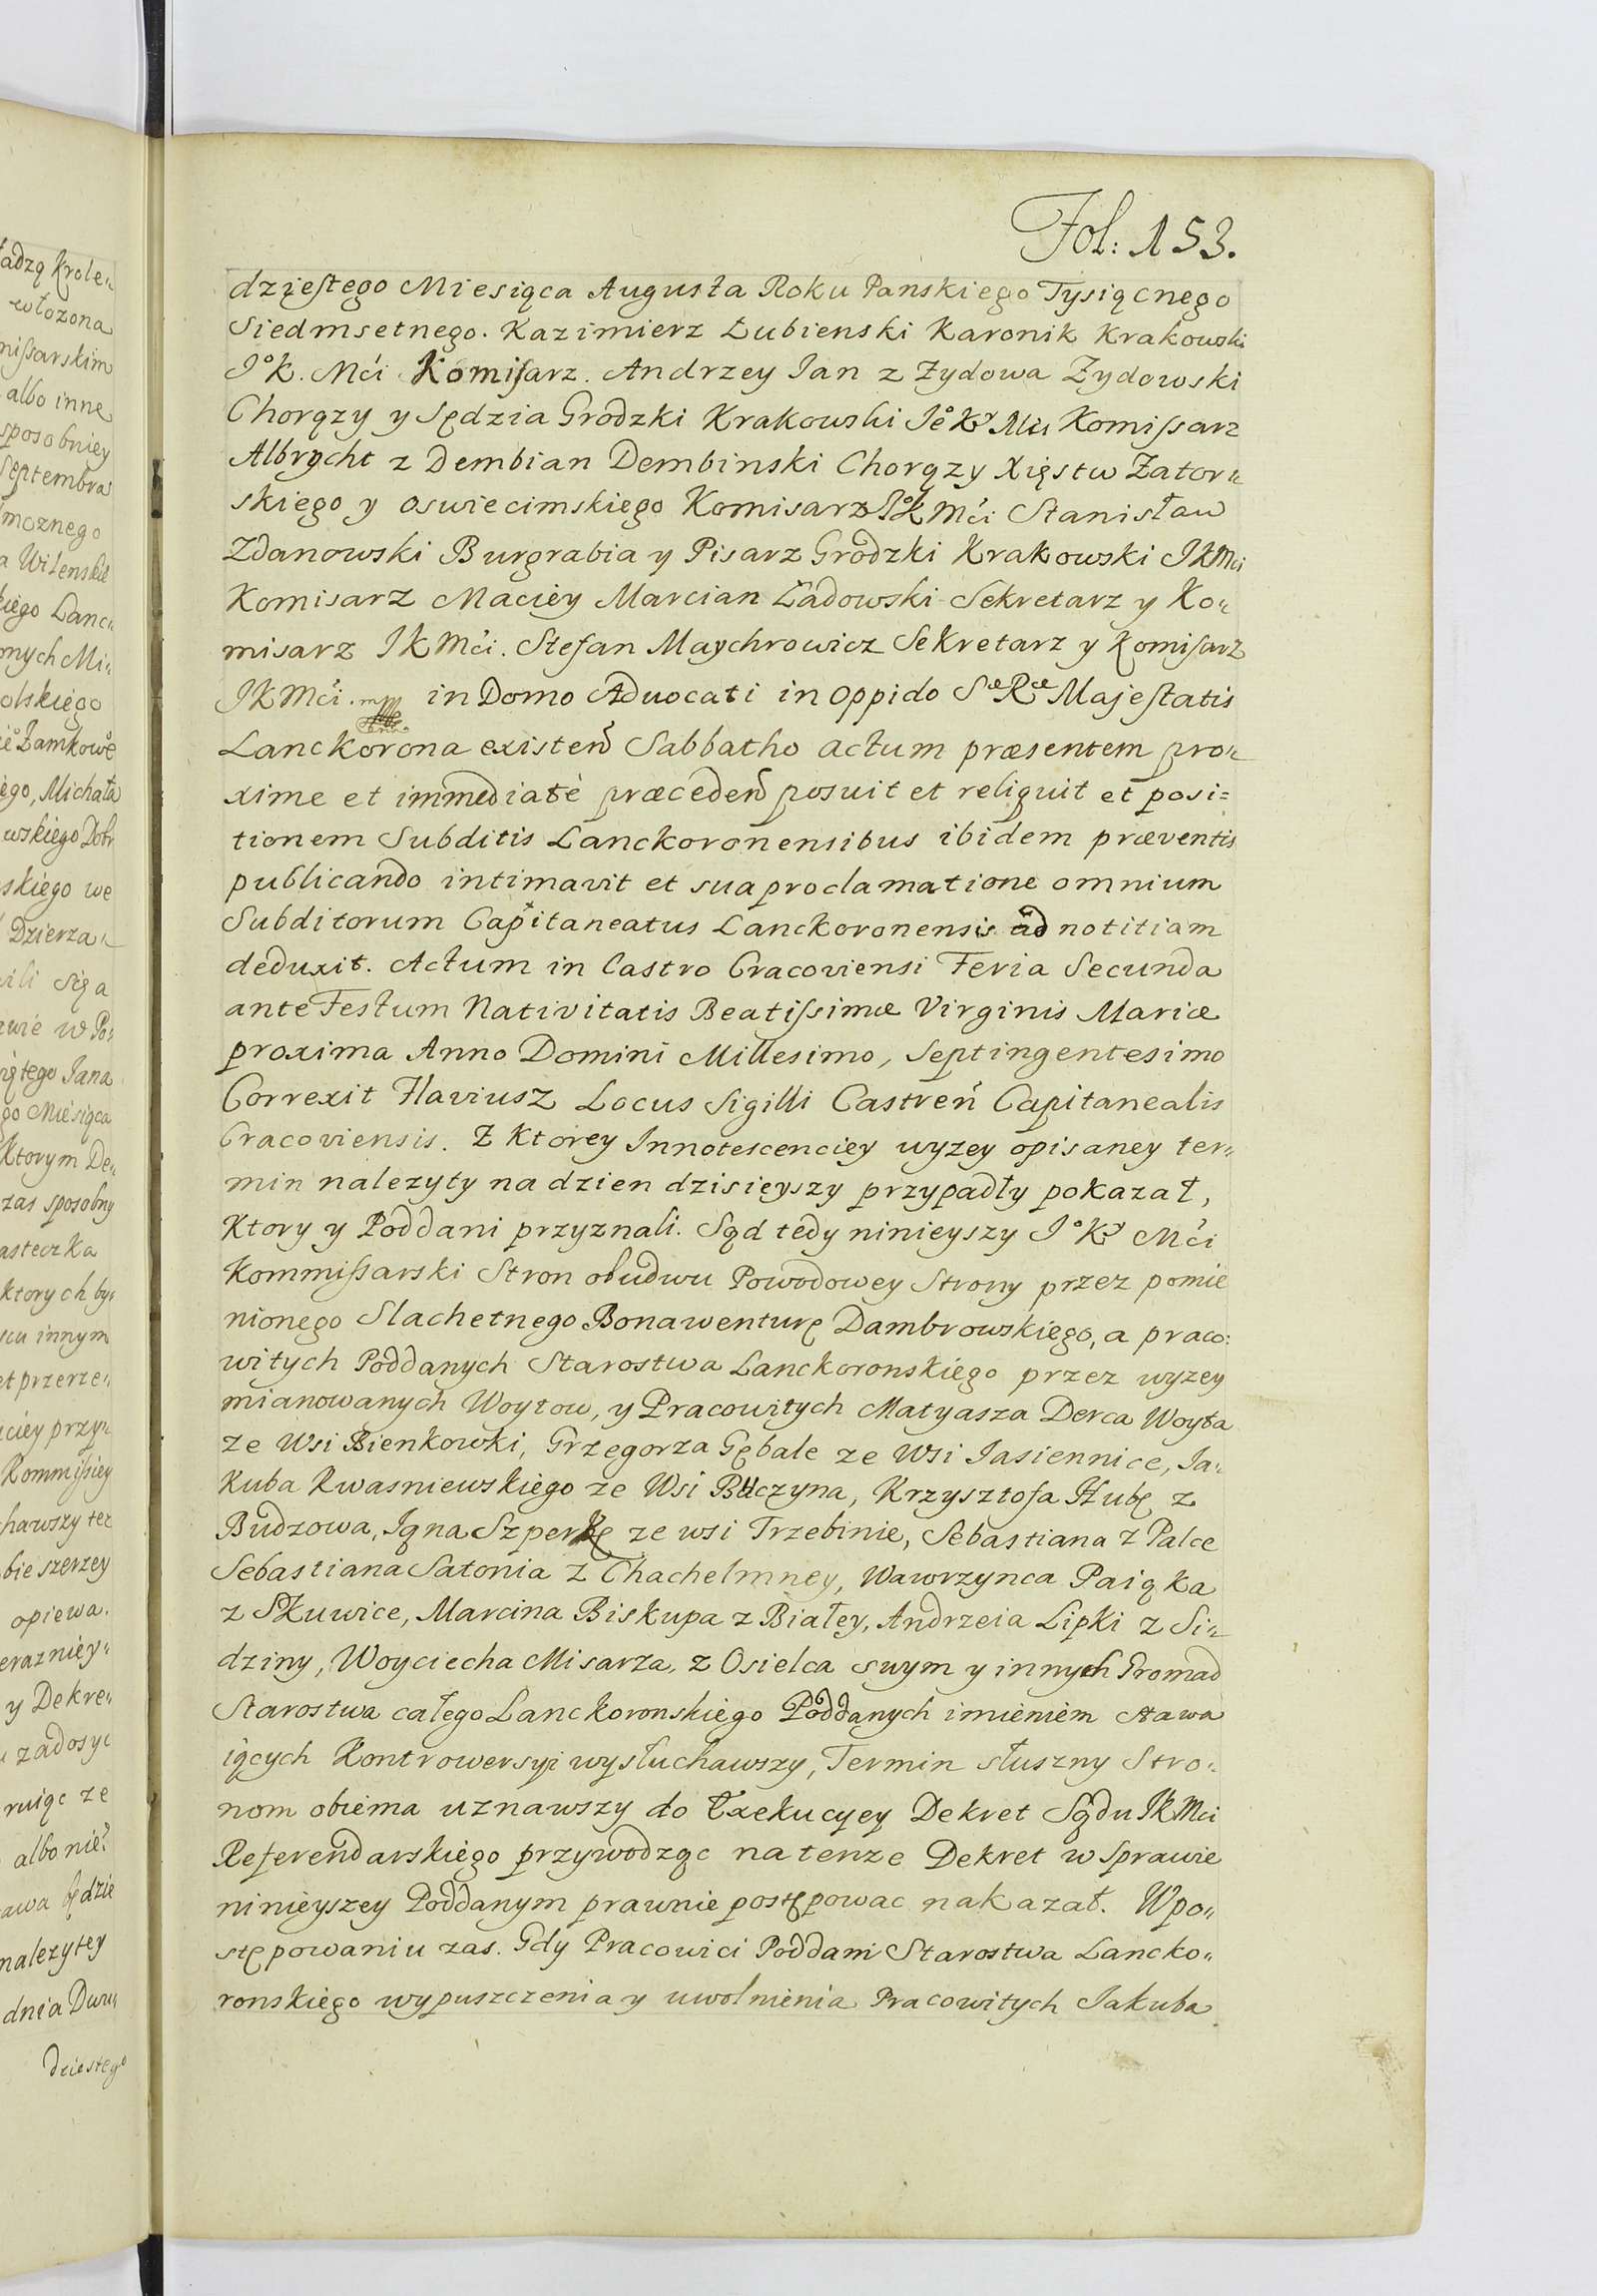 Fol: 153.
dzięstego Miesiąca Augusta Roku Panskiego Tysiącnego
Siedmsetnego. Kazimierz Łubienski Karonik Krakowski
J°K. Mći Komisarz. Andrzey Jan z Zydowa Zydowski
Chorązy y Sędzia Grodzki Krakowski Komissarz
Albrycht z Dembian Dembinski Chorązy Xięstw Zator„
skiego y Oswiecimskiego Komisarz J°K Mći Stanisław
Zdanowski Burgrabia y Pisarz Grodzki Krakowski JKMći
Komisarz Maciey Marcian Ładowski Sekretarz y Ko„
misarz JKMći. Stefan Maychrowicz Sekretarz y Komisarz
JKMći. in Domo Aduocati in Oppido Sæ Ræ Majestatis
Lanckorona existeñ Sabbatho actum præsentem pro„
xime et immediatè præcedeñ posuit et reliquit et posi=
tionem Subditis Lanckoronensibus ibidem præventis
publicando intimavit et sua proclamatione omnium
Subditorum Capitaneatus Lanckoronensis ad notitiam
deduxit. Actum in Castro Cracoviensi Feria Secunda
ante Festum Nativitatis Beatissimæ Virginis Mariæ
proxima Anno Domini Millesimo, Septingentesimo
Correxit Flaviusz Locus Sigilli Castreń Capitanealis
Cracoviensis. Z Ktorey Innotescenciey wyzey opisaney ter„
min nalezyty na dzien dzisieyszy przypadły pokazał,
Ktory y Poddani przyznali. Sąd tedy ninieyszy J°K Mći
Kommissarski Stron obudwu Powodowey Strony przez pomie
nionego Slachetnego Bonawenturę Dambrowskiego, a praco:
witych Poddanych Starostwa Lanckoronskiego przez wyzey
mianowanych Woytow, y Pracowitych Matyasza Derca Woyta
ze Wsi Bienkowki, Grzegorza Gębale ze Wsi Jasiennice, Ja„
Kuba Kwasniewskiego ze Wsi Buczyna, Krzysztofa Hubę z
Budzowa, Jgna Szperkę ze wsi Trzebinie, Sebastiana z Palce
Sebastiana Satonia z Chachelmney, Wawrzynca Paiąka
z Skuwice, Marcina Biskupa z Białey, Andrzeia Lipki z Si„
dziny, Woyciecha Misarza, z Osielca swym y innych Gromad
Starostwa całego Lanckoronskiego Poddanych imieniem stawa
iących Kontrowersyi wysłuchawszy, Termin słuszny Stro„
nom obiema uznawszy do Exekucyey Dekret Sądu JKMći
Referendarskiego przywodząc na tenze Dekret w Sprawie
ninieyszey Poddanym prawnie postępowac nakazał. W po„
stępowaniu zas. Gdy Pracowici Poddani Starostwa Lancko„
ronskiego wypuszczenia y uwolnienia Pracowitych Jakuba